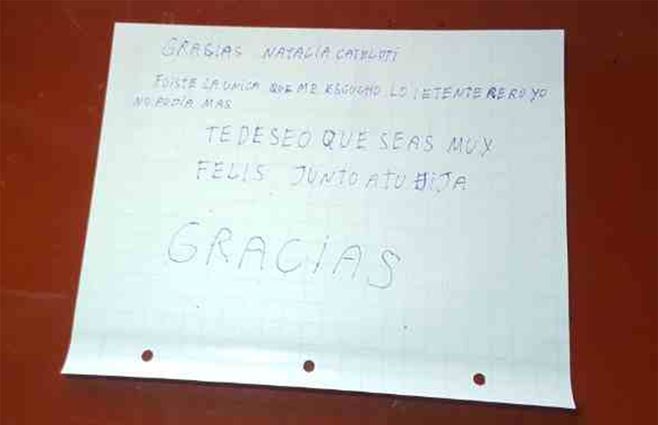 GRACIAS NATALIA CATELOTI
FUISTE LA UNICA QUE ME ESCUCHO LO IETENTE PERO YO
NO PODIA MAS
TE DESEO QUE SEAS MUY
FELIS JUNTO A TU HIJA
GRACIAS